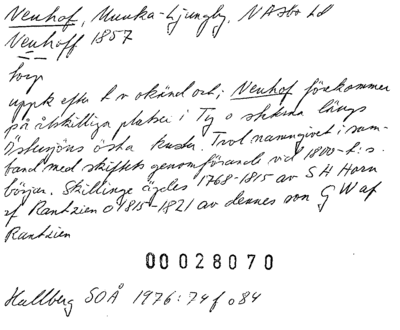 Neuhof, Munka-Ljungby, N Åsbo hd
Neuhoff 1857
torp
uppk efter t v okänd ort; Neuhof förekommer
på åtskilliga platser i Ty o skilda längs
Östersjöns östra kuster. Trol namngivet i sam-
band med skiftets genomförande vid 1800-t:s
början. Skillinge ägdes 1768-1815 av S H Horn
af Rantzien o 1815-1821 av dennes son G W af
Rantzien
00028070
Hallberg SOÅ 1976:74f o 84